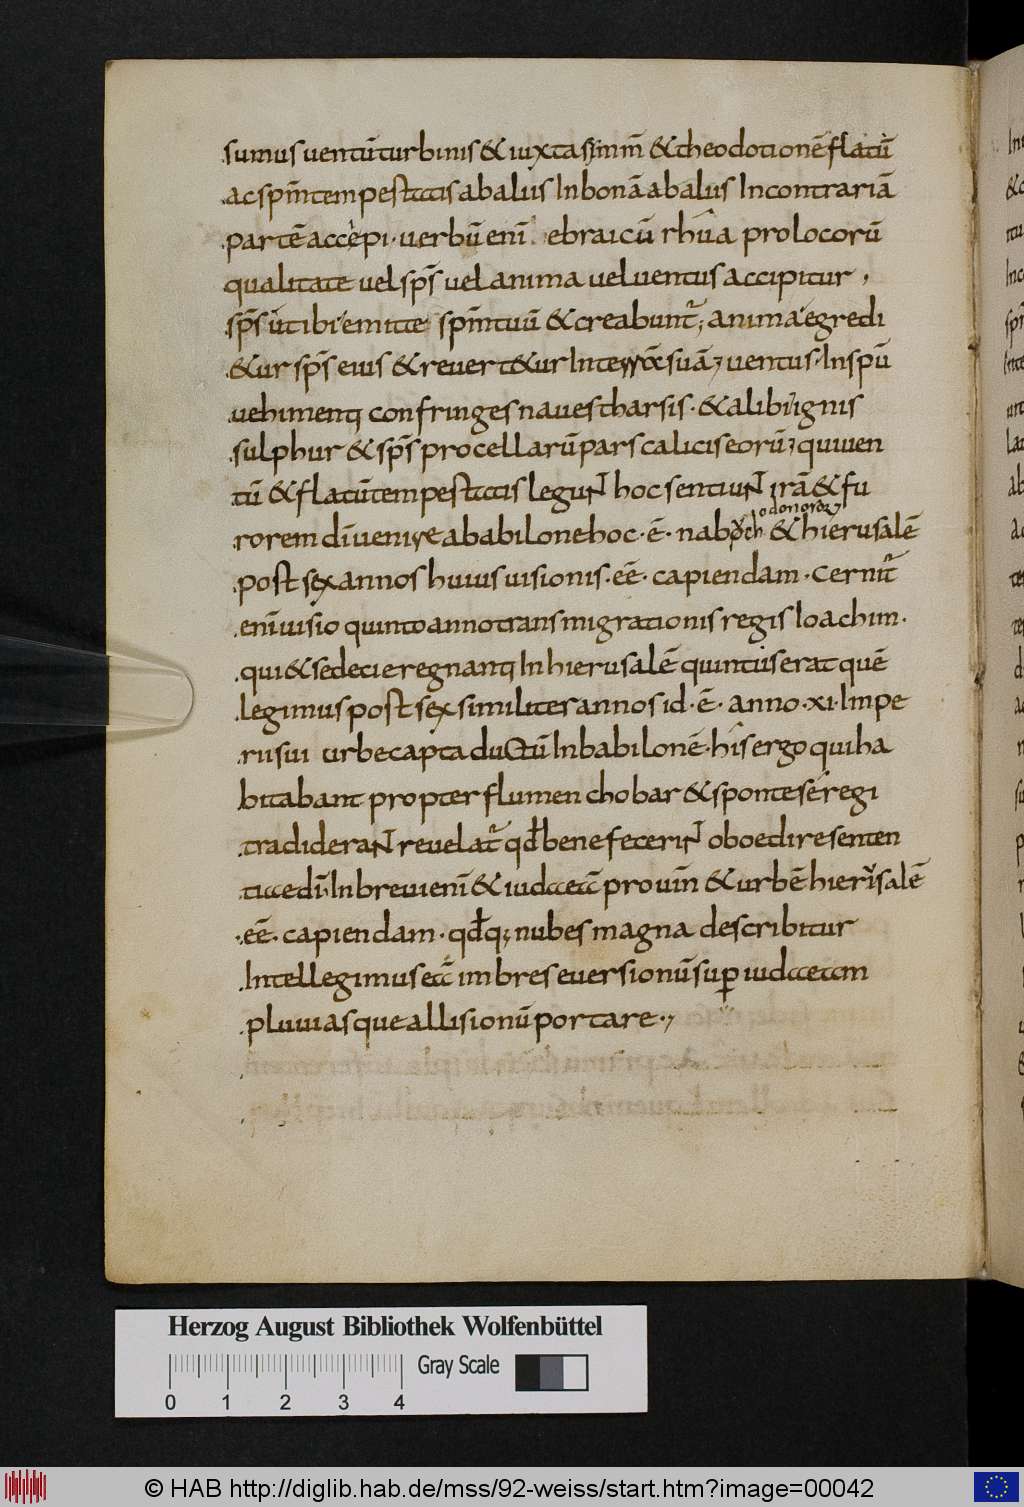 sumus uentū turbinis & iuxta sẏmm̄ & theodotionē flatū
ac spm̄ tempestatis ab aliis In bonā ab aliis In contrariā
partē accepi · uerbū enī ebraicū rhua pro locorū
qualitate uel sps̄ uel anima uel uentus accipitur ,
sps̄ ut ibi emitte spm̄ tuū & creabuntr̄ ; anima egredi
&ur sps̄ eius & reuert&ur In terrā suā ; uentus · In spū
uehimenti confringes naues tharsis · & alibi ignis
sulphur & sps̄ procellarū pars calicis eorū ; qui uen
tū & flatū tempestatis legunt hoc sentiunt irā & fu
rorem dī uenire a babilone hoc · ē · nabuch & hierusalē
odonoroz
post sex annos huius uisionis · eē · capiendam · Cernitr̄
enī uisio quinto anno transmigrationis regis Ioachim ·
qui & sedecie regnanti In hierusalē quintus erat quē
legimus post sex similiter annos id · ē · anno · xi · Impe
rii sui urbe capta ductū In babilonē · his ergo qui ha
bitabant propter flumen chobar & sponte se regi
tradiderant reuelatr̄ qđ bene fecerint oboedire senten
tiae dī · In breui enī & iudaeā prouin̄ & urbē hierusalē
· eē · capiendam · qđ q; nubes magna describitur
Intellegimus eā imbres euersionū sup iudaeam
pluuiasque allisionū portare · ,
Herzog August Bibliothek Wolfenbüttel
Gray Scale
0 1 2 3 4
© HAB http://diglib.hab.de/mss/92-weiss/start.htm?image=00042